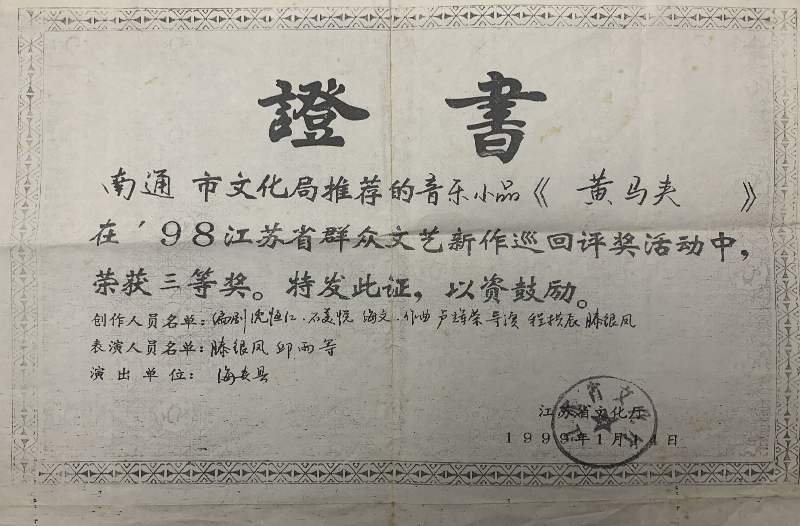 證書
南通 市文化局推荐的音乐小品《 黄马夹 》
在'98江苏省群众文艺新作巡回评奖活动中，
荣获三等奖。特发此证，以资鼓励。
创作人员名单：编剧 沈恒仁．石美悦 海文．作曲 卢辉荣 导演 滕银凤
表演人员名单：滕银凤 邱雨等
演出单位： 海安县
江苏省文化厅
1999年1月14日